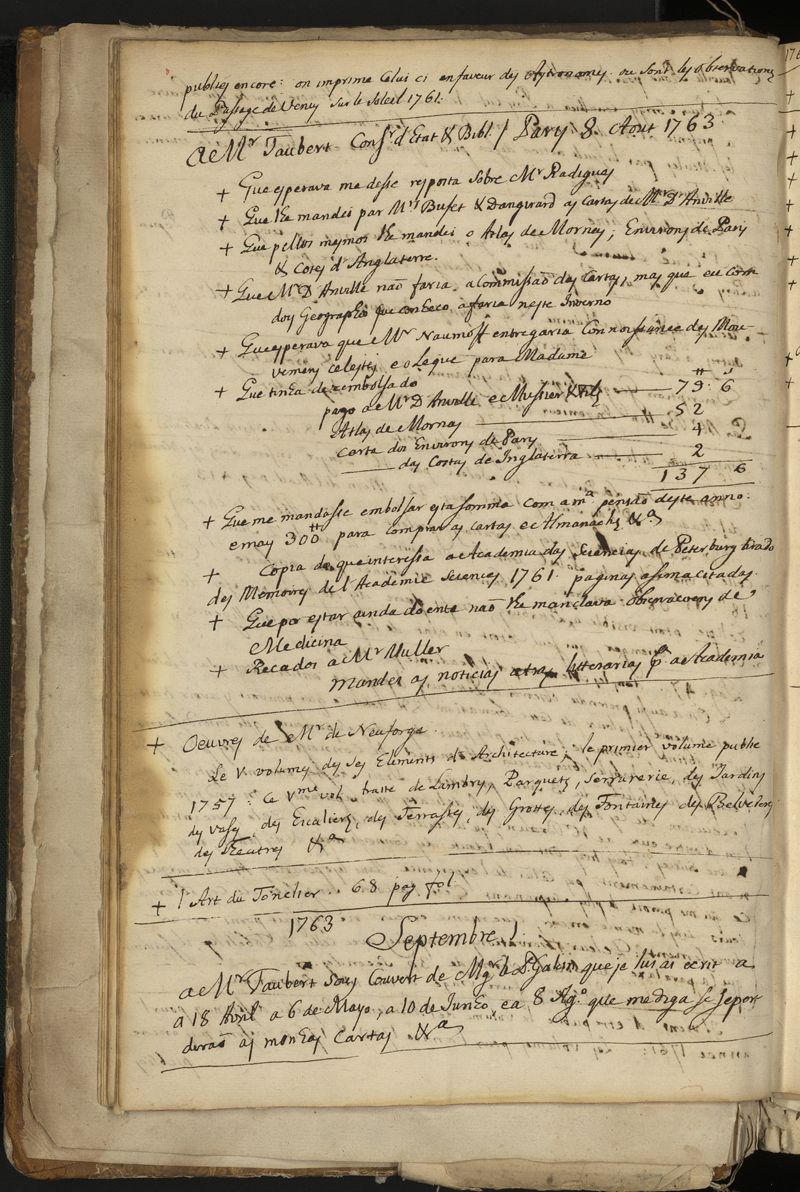 publiés encore: on imprime celui ci en faveur des Astronomes. ou sont les observations
du Passage de Venus sur le Soleil 1761.
A Mr Taubert Consr. d'Etat & Bibl. / Paris 8. Aout 1763
+ Que esperava me desse resposta sobre Mr Radigues
+ Que lhe mandei por Mrs Bufet & Dangirard as cartas de Mr D'Anville
+ Que pellos mesmos lhe mandei o Atlas de Mornas; Environs de Paris
& Cotes d'Angleterre.
+ Que Mr D'Anville não faria a Commissão das Cartas, mas que eu com
dois Geographos que conheco a faria neste Inverno
+ Que esperava que Mr Naumoff entregaria Connoissance des Mou-
vemens celestes, e o Leque para Madame
+ Que tinha dezembolsado
pago a Mr D'Anville e Mussier & fils 79. 6
Atlas de Mornas 52
Carta dos Environs de Paris 4
das Costas de Inglaterra 2
137 6
+ Que me mandasse embolsar esta somma com a ma. pensão deste anno.
e mais 300 tt para comprar as cartas e Almanachs &a
+ Copia do que interessa a Academia das Sciencias de Peterburg tirado
des Memoires de l'Academie Sciences 1761. paginas assima citadas.
+ Que por estar ainda doente não lhe mandava observacoens de
Medicina
+ Recados a Mr Muller
Mandei as noticias atras litterarias pa. a Academia
+ Oeuvres de Mr de Neuforge.
Le V. volumes de ses Elements d'Architecture; le premier volume publié
1757: Ce Vme vol. traite de Lambris, Parquets, Serrurerie, des Jardins
des Vases, des Escaliers, des Terrasses, des Grottes, des Fontaines des Belveders
des Theatres &a
+ l'Art du Tonelier.. 68 pag. fol.
1763 Septembre 1.
a Mr Taubert sous Couvert de Mgr le P. Galitzin que je lui ai ecrit a
a 18 Avril a 6 de Mayo, a 10 de Junho, e a 8 Ago. que me diga se se per-
derão as minhas Cartas &a